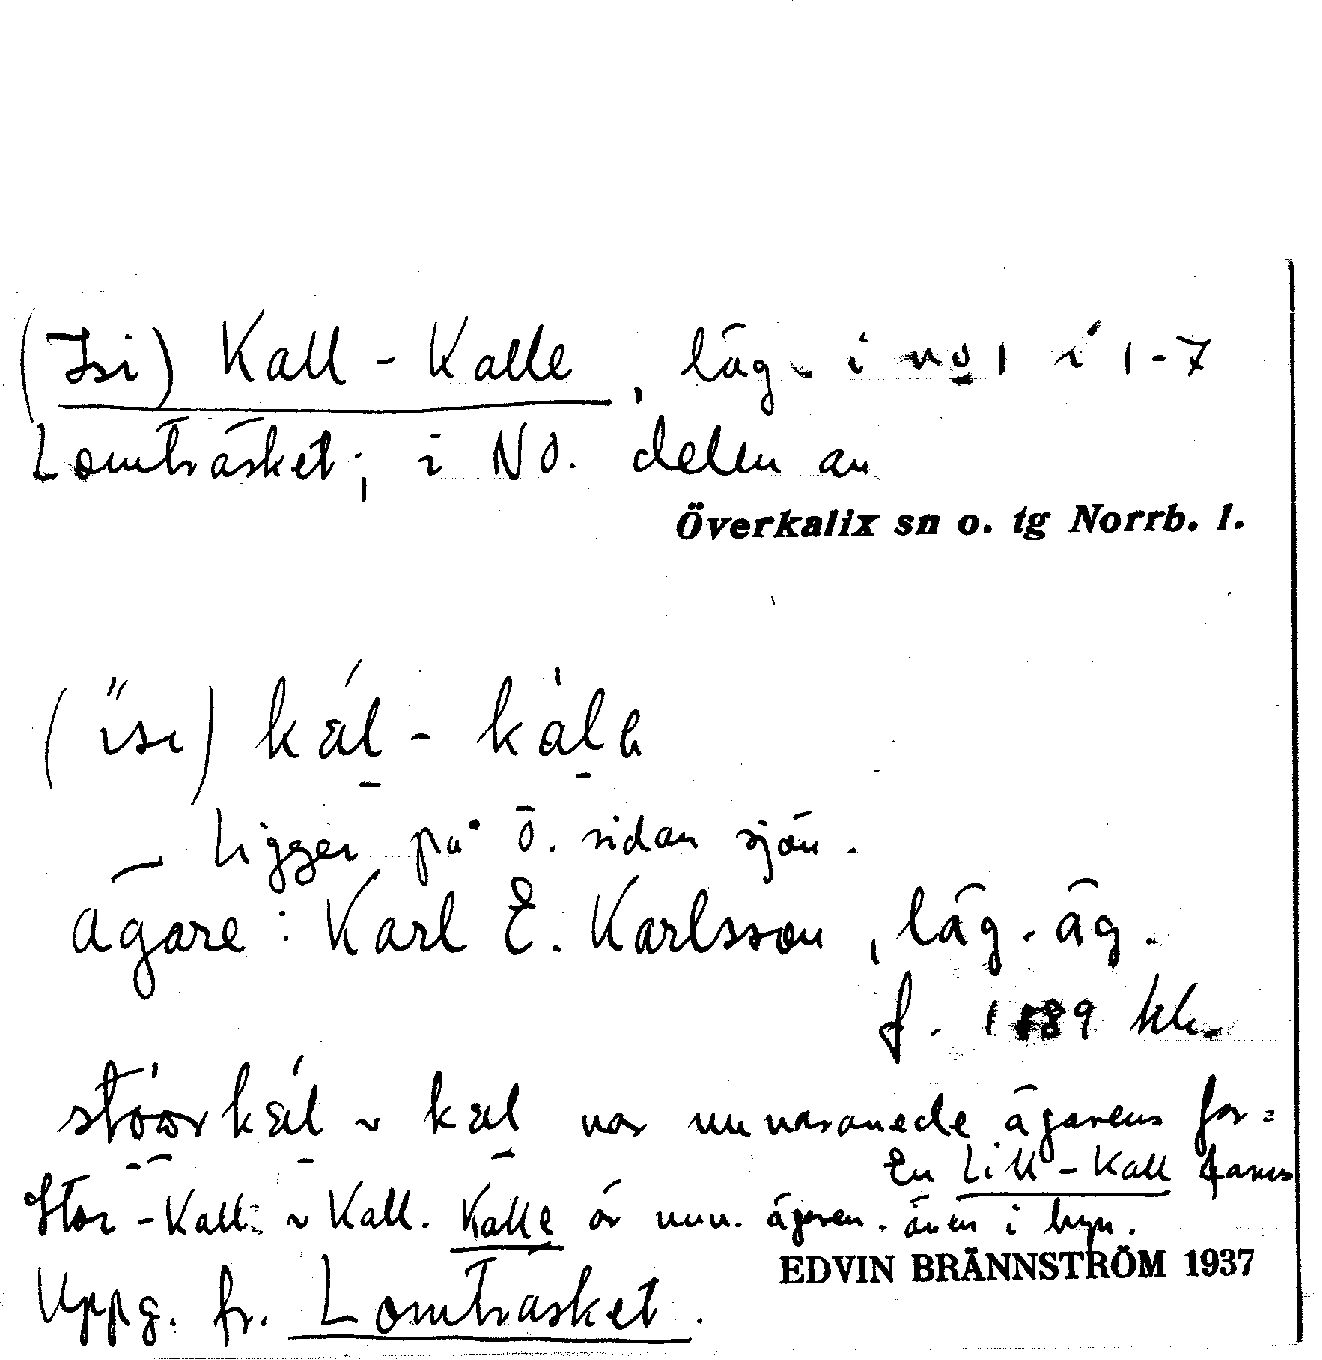 (Isi) Kall-Kalle, läg. i no 1 i 1-7
Lomträsket; i NO. delen av
Överkalix sn o. tg Norrb. l.
(isi) kál - kàlɩ
— Ligger på ö. sidan sjön.
ägare: Karl E. Karlsson, läg.äg.
f. 1889 kh.
kál ~ kal var nuvarande ägarens far =
En Lill-Kall fanns
Stor-Kall ~ Kall. Kalle är nuv. ägaren. även i byn.
EDVIN BRÄNNSTRÖM 1937
Uppg. fr. Lomträsket.